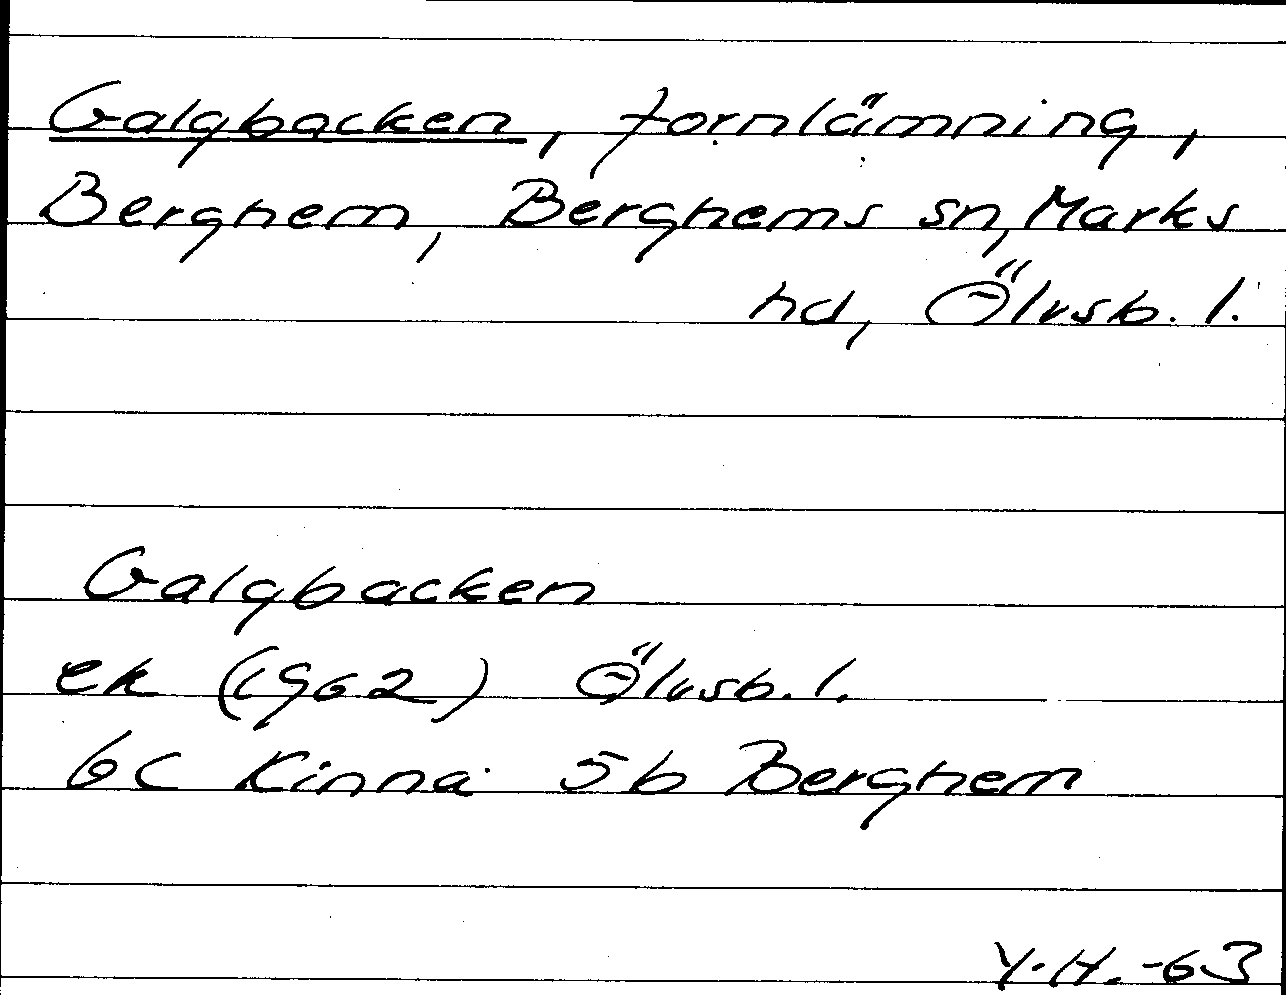 Galgbacken, fornlämning,
Berghem, Berghems sn, Marks
hd, Älvsb. l.
Galgbacken
ek (1962) Älvsb. l.
6C Kinna 5b Berghem
Y.H.-63